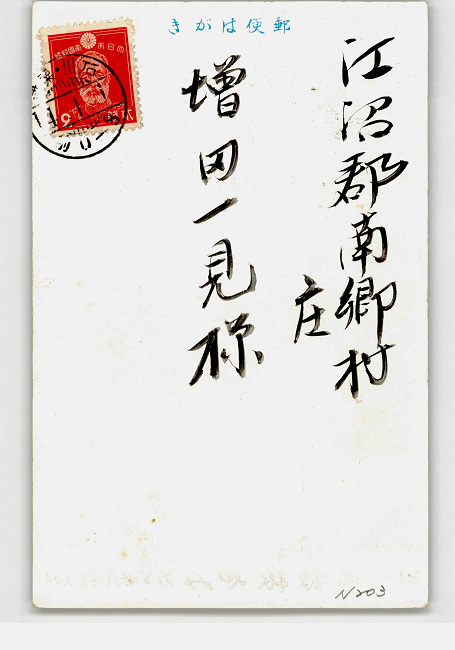 郵便はがき
江沼郡南郷村
庄
増田一見様
大日本帝國郵便
N203